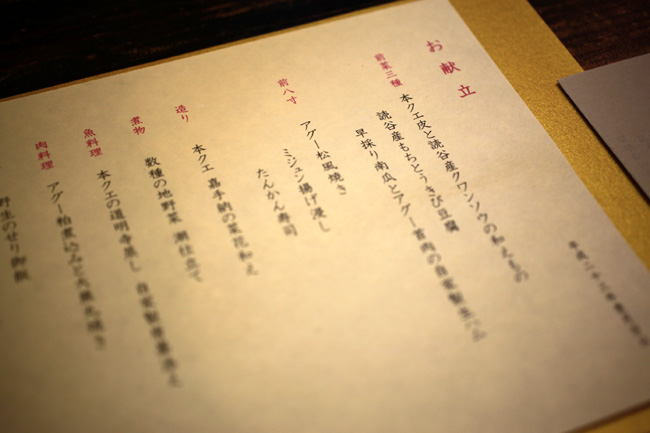 お献立
前菜三種
本クエ皮と読谷産クワンソウの和えもの
読谷産もちとうきび豆腐
早採り南瓜とアグー首肉の自家製生ハム
前八寸
アグー松風焼き
ミジュン揚げ浸し
たんかん寿司
造り
本クエ 嘉手納の菜花和え
煮物
数種の地野菜 潮仕立て
魚料理
本クエの道明寺蒸し 自家製
肉料理
アグー粕煮込みと大根
野生のせり御飯
平成二十三年